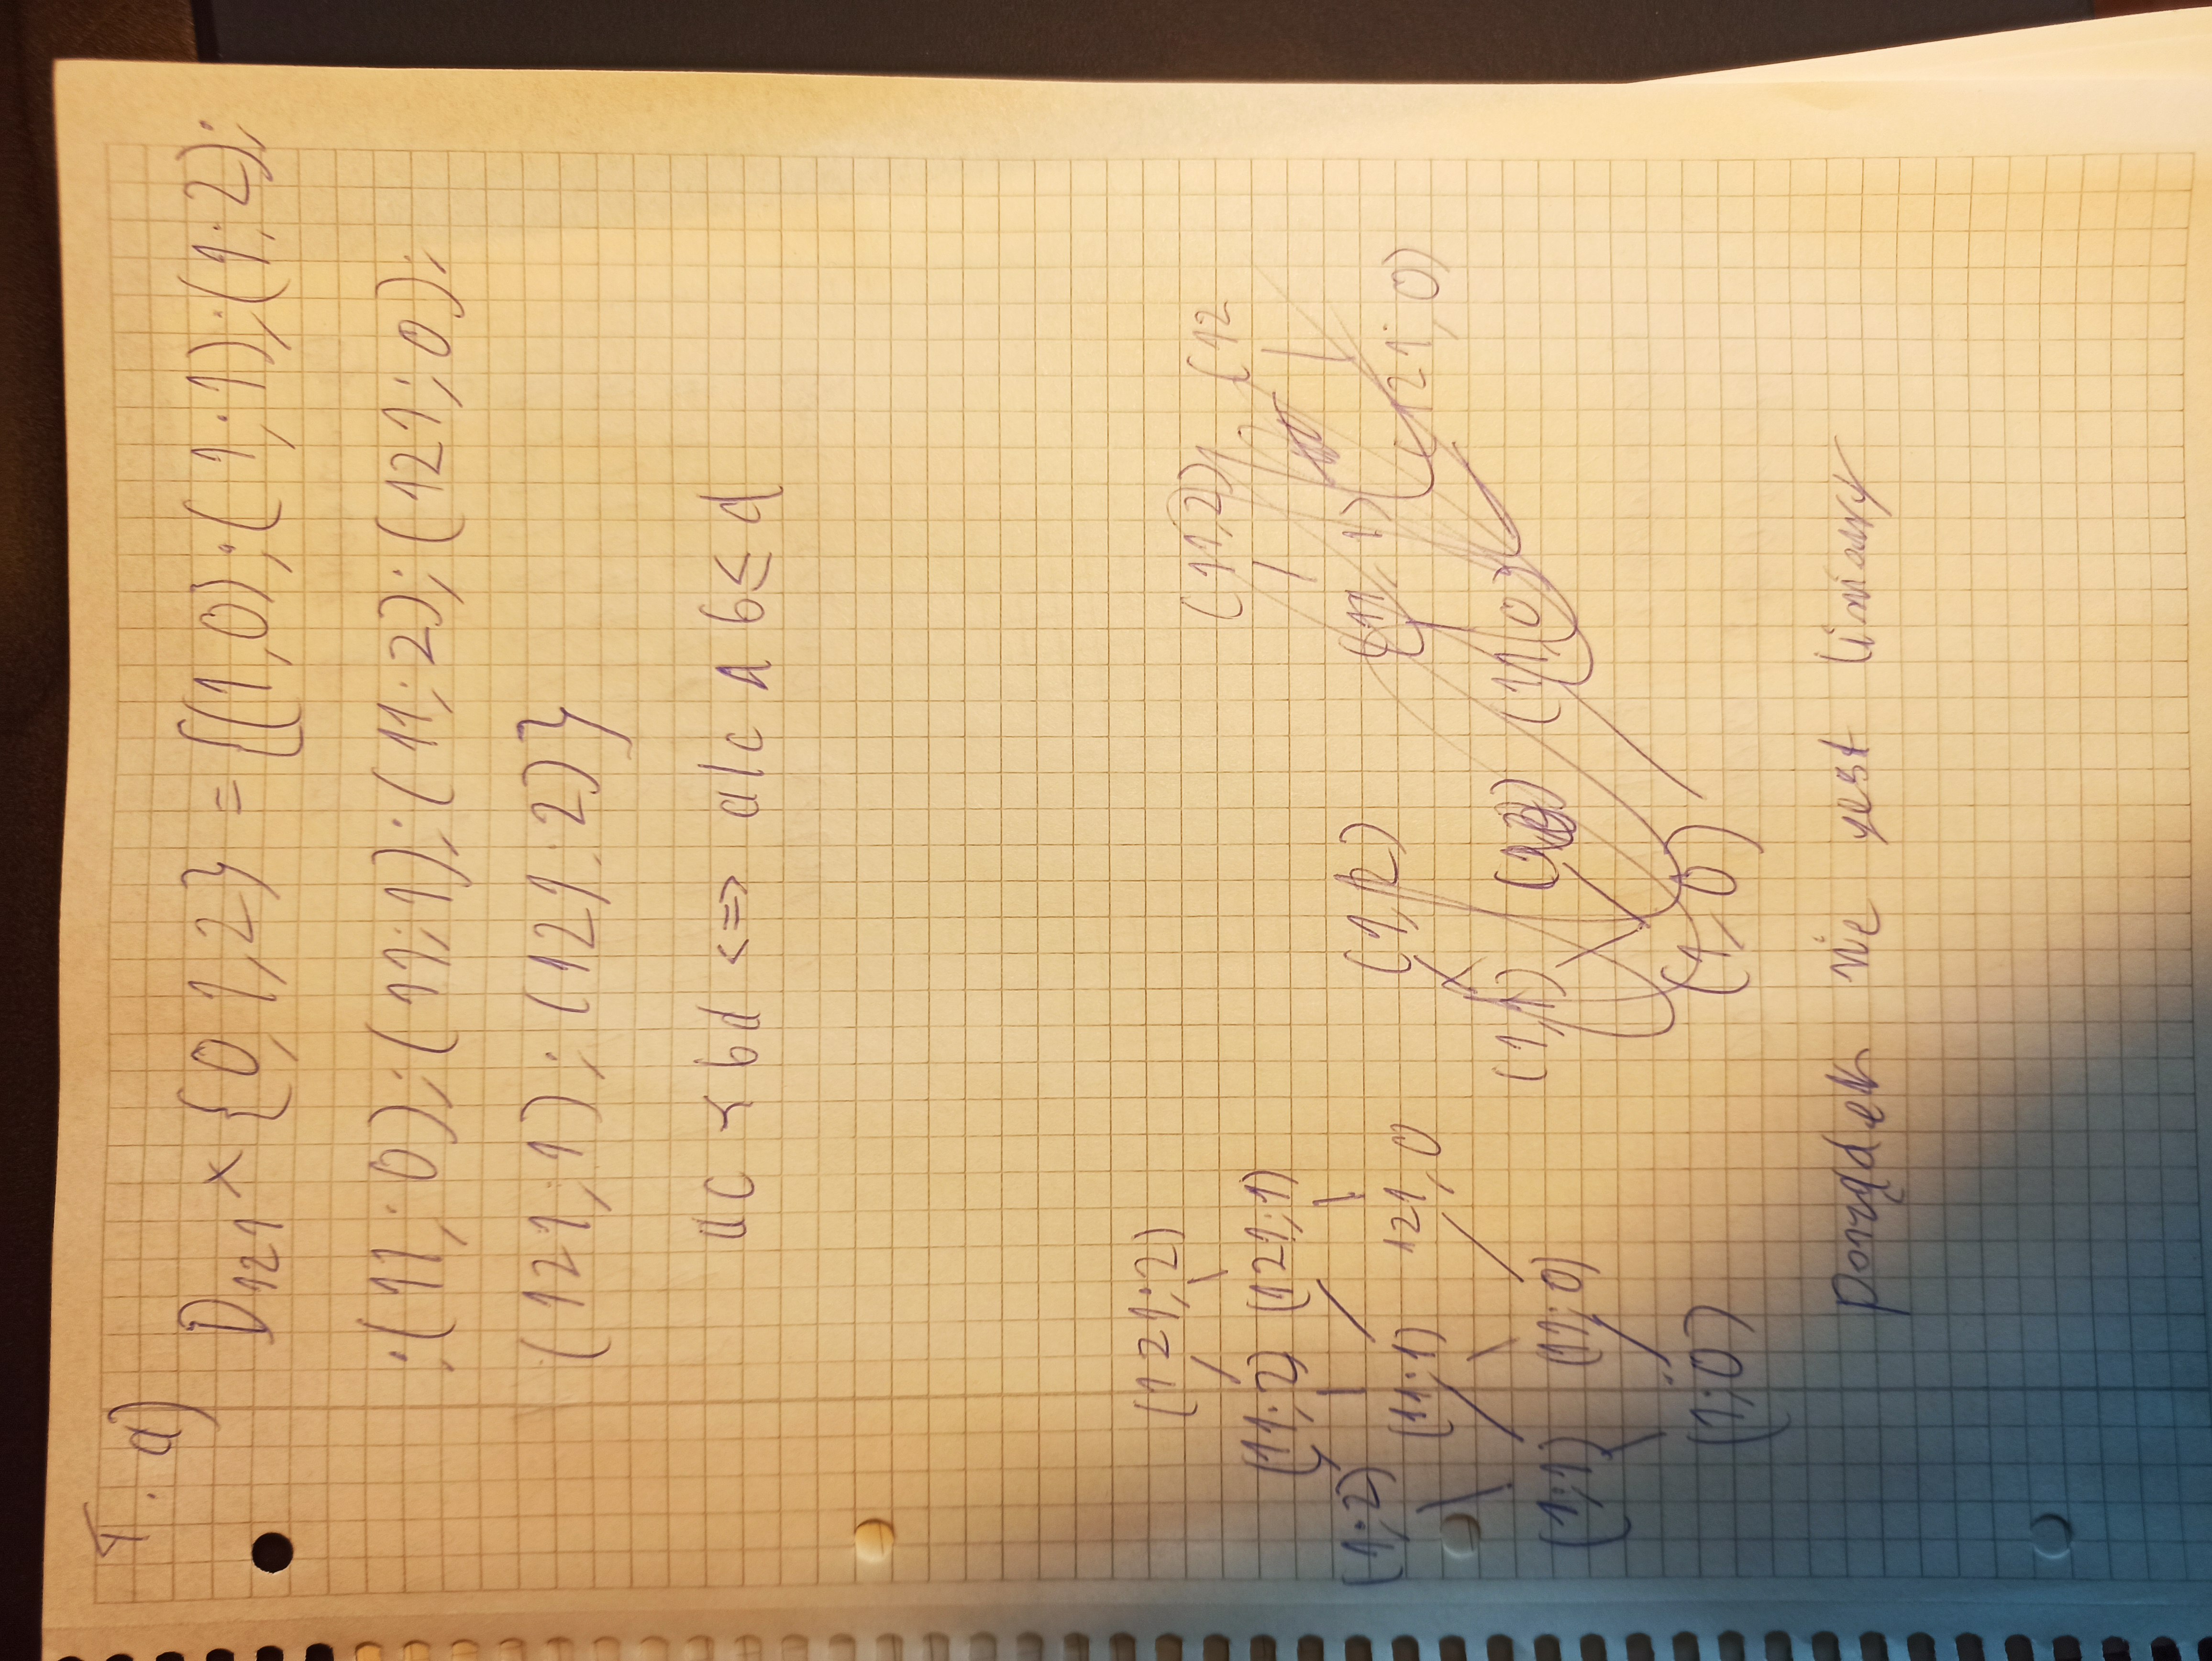 a)
D₁₂₁ × {0,1,2} = {(1,0);(1;1);(1;2);
;(11;0);(11;1);(11;2);(121;0);
(121;1);(121;2)}
ac ≺ bd <=> a|c ∧ b≤d
(121;2)
(11;2) (121;1)
(1;2)
(11;1) 121,0
(1;1) (11;0)
(1;0)
(11,2) (12
(1,2) (11,1) (121;0)
(1,1) (11,0)
(1,0)
porządek nie jest liniowy